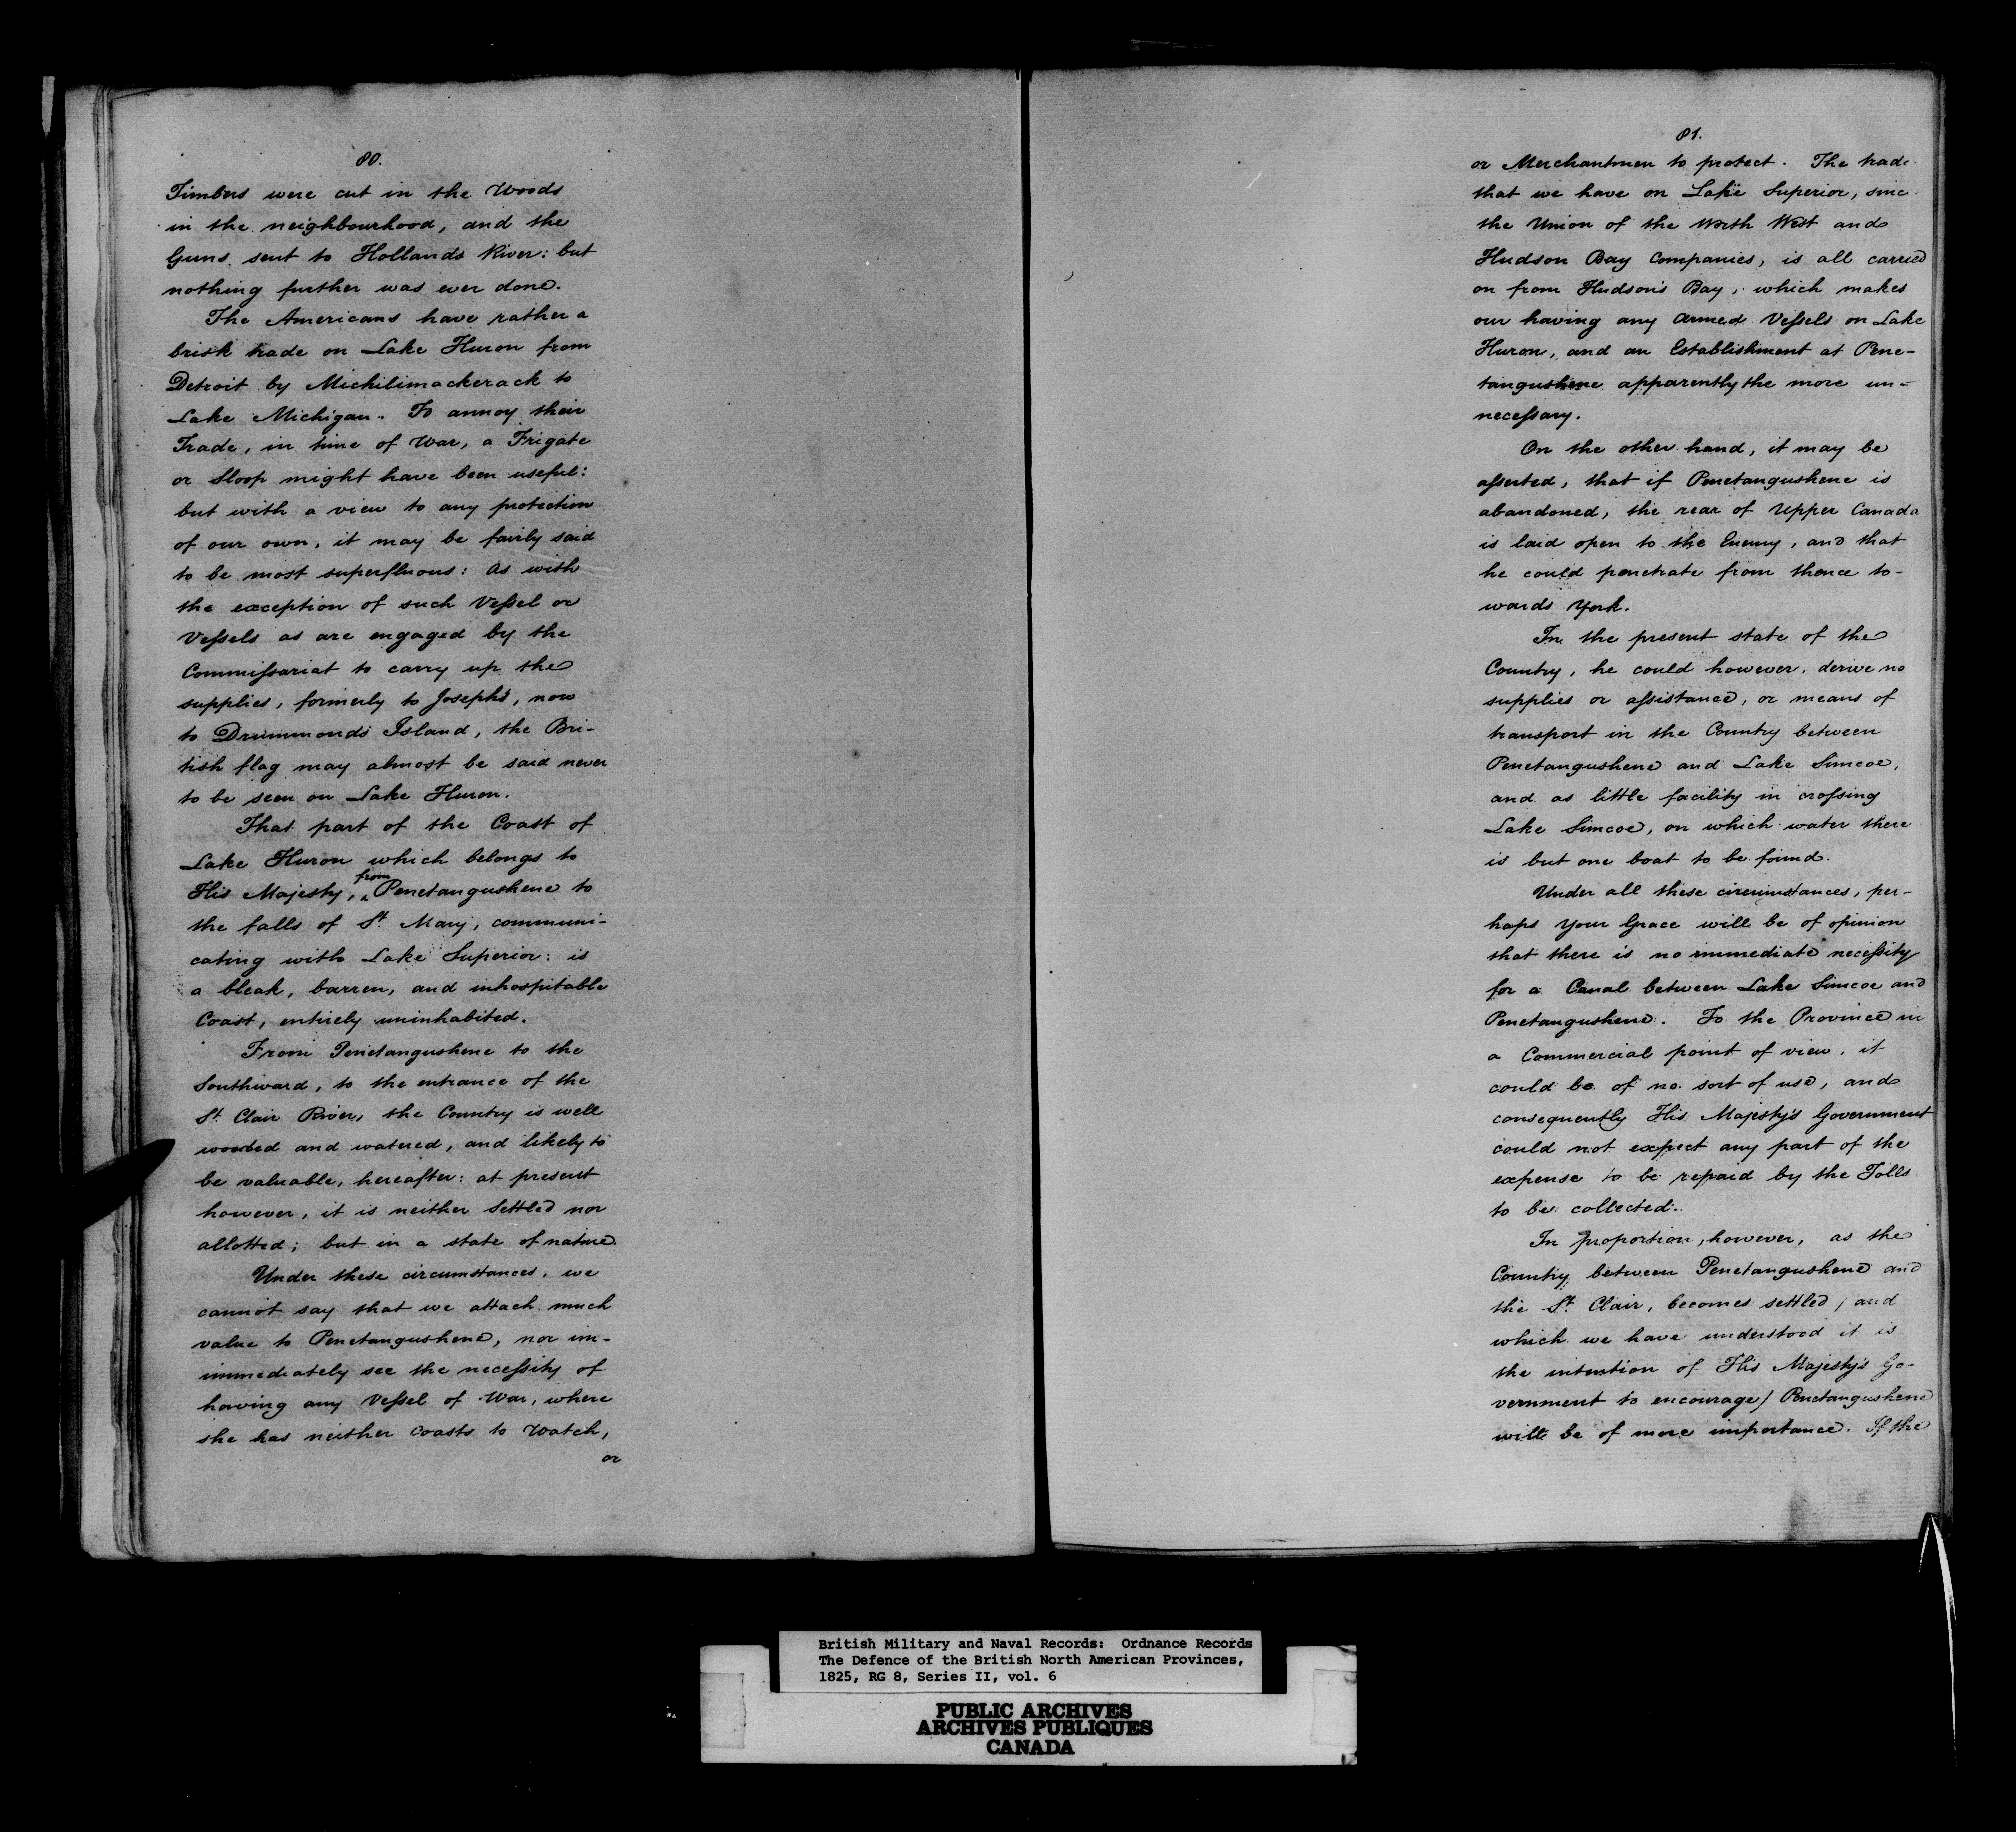 80.
Timbers were cut in the Woods
in the neighbourhood, and the
Guns sent to Hollands River: but
nothing further was ever done.
The Americans have rather a
brisk trade on Lake Huron from
Detroit by Michilimackerack to
Lake Michigan. To annoy their
Trade, in time of War, a Frigate
or Sloop might have been useful:
but with a view to any protection
of our own, it may be fairly said
to be most superfluous: As with
the exception of such Vessel or
Vessels as are engaged by the
Commissariat to carry up the
supplies, formerly to Joseph's, now
to Drummonds Island, the Bri-
tish flag may almost be said never
to be seen on Lake Huron.
That part of the Coast of
Lake Huron which belongs to
His Majesty, from Penetangushene to
the falls of St. Mary, communi-
cating with Lake Superior: is
a bleak, barren, and inhospitable
Coast, entirely uninhabited.
From Penetangushene to the
Southward, to the entrance of the
St. Clair River, the Country is well
wooded and watered, and likely to
be valuable, hereafter: at present
however, it is neither settled nor
allotted; but in a state of nature.
Under these circumstances, we
cannot say that we attach much
value to Penetangushene, nor im-
immediately see the necessity of
having any Vessel of War, where
she has neither Coasts to Watch,
or
81.
or Merchantmen to protect. The trade
that we have on Lake Superior, sinc
the Union of the North West and
Hudson Bay Companies, is all carried
on from Hudson's Bay, which makes
our having any Armed Vessels on Lake
Huron, and an Establishment at Pene-
tangushene apparently the more un-
necessary.
On the other hand, it may be
asserted, that if Penetangushene is
abandoned, the rear of Upper Canada
is laid open to the Enemy, and that
he could penetrate from thence to-
wards York.
In the present state of the
Country, he could however, derive no
supplies or assistance, or means of
transport in the Country between
Penetangushene and Lake Simcoe,
and as little facility in crossing
Lake Simcoe, on which water there
is but one boat to be found.
Under all these circumstances, per-
haps Your Grace will be of opinion
that there is no immediate necessity
for a Canal between Lake Simcoe and
Penetangushene. To the Province in
a Commercial point of view, it
could be of no sort of use, and
consequently His Majesty's Government
could not expect any part of the
expense to be repaid by the Tolls
to be collected.
In proportion, however, as the
Country between Penetangushene and
the St. Clair, becomes settled, (and
which we have understood it is
the intention of His Majesty's Go-
vernment to encourage) Penetangushene
will be of more importance. If the
British Military and Naval Records: Ordnance Records
The Defence of the British North American Provinces,
1825, RG 8, Series II, vol. 6
PUBLIC ARCHIVES
ARCHIVES PUBLIQUES
CANADA